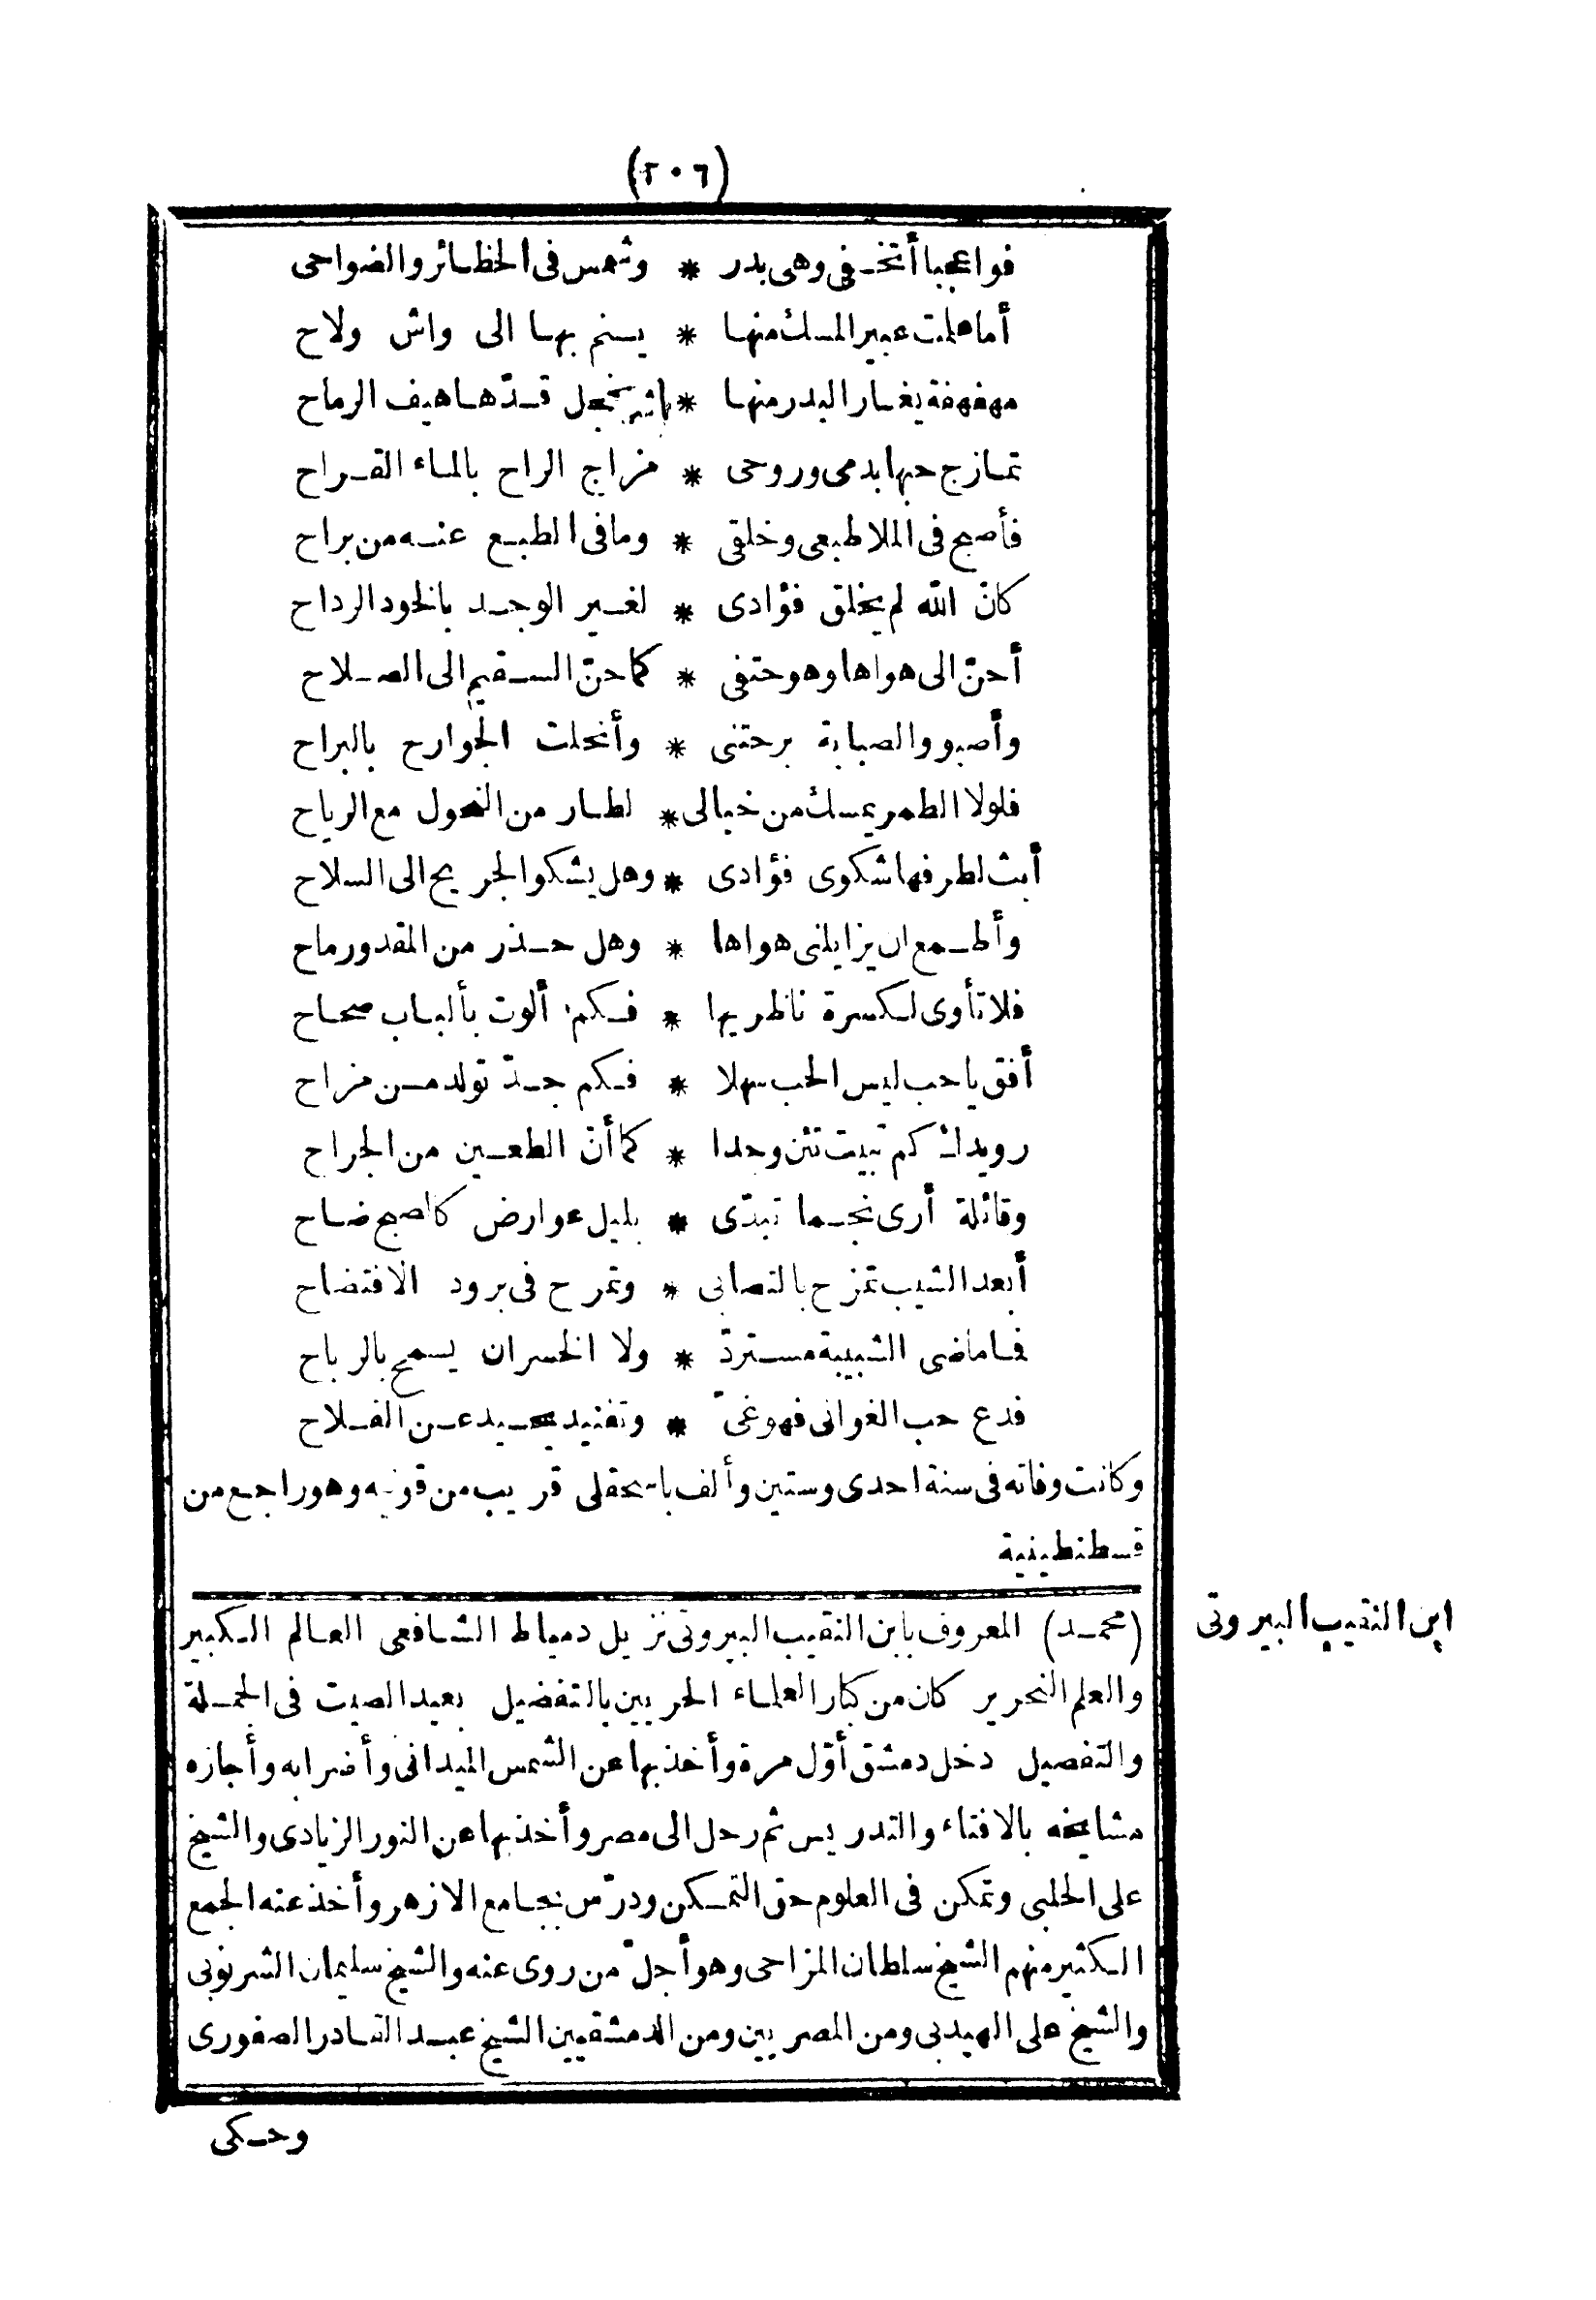 (٢٠٦)
فواعجبا أتخفى وهى بدر * وشمس فى الحظائر والضواحى
أما علمت عبير المسك منها * ينم بها الى واش ولاح
مهفهفة يغار البدر منها * يخجل قدّها هيف الرماح
تمازج حبها بدمى وروحى * مزاج الراح بالماء القراح
فأصبح فى الملا طبعى وخلقى * وما فى الطبع عنه من براح
كانّ الله لم يخلق فؤادى * لغير الوجد بالخود الرداح
أحنّ الى هواها وهو حتفى * كما حنّ السقيم الى الصلاح
وأصبو والصبابة برحتنى * وأنحلت الجوارح بالبراح
فلولا الطمر يمسك من خيالى * لطار من النحول مع الرياح
أبث لطرفها شكوى فؤادى * وهل يشكو الجريح الى السلاح
وأطمع ان يزايلنى هواها * وهل حذر من المقدور ماح
فلا تأوى لكسرة ناظريها * فكم ألوت بألباب صحاح
أفق يا حب ليس الحب سهلا * فكم جدّ تولد من مزاح
رويدك كم تبيت تئن وجدا * كما أنّ الطعين من الجراح
وقائلة أرى نجما تبدّى * بليل عوارض كالصبح ضاح
أبعد الشيب تمزح بالتصابى * وتمرح فى برود الافتضاح
فما ماضى الشبيبة مستردّ * ولا الخسران يسمح بالرباح
فدع حب الغوانى فهو غىّ * وتفنيد يحيد عن الفلاح
وكانت وفاته فى سنة احدى وستين وألف قريب من قونيه وهو راجع من
قسطنطينية
ابن النقيب البيروتى
(محمد) المعروف بابن النقيب البيروتى نزيل دمياط الشافعى العالم الكبير
والعلم النحرير كان من كبار العلماء الحريين بالتفضيل بعيد الصيت فى الجملة
والتفصيل دخل دمشق أوّل مرة وأخذ بها عن الشمس الميدانى وأضرابه وأجازه
مشايخه بالافتاء والتدريس ثم رحل الى مصر وأخذ بها عن النور الزيادى والشيخ
على الحلبى وتمكن فى العلوم حق التمكن ودرّس بجامع الازهر وأخذ عنه الجمع
الكثير منهم الشيخ سلطان المزاحى وهو أجلّ من روى عنه والشيخ سليمان الشرنوبى
والشيخ على الهيدبى ومن المصريين ومن الدمشقيين الشيخ عبد القادر الصفورى
وحكى